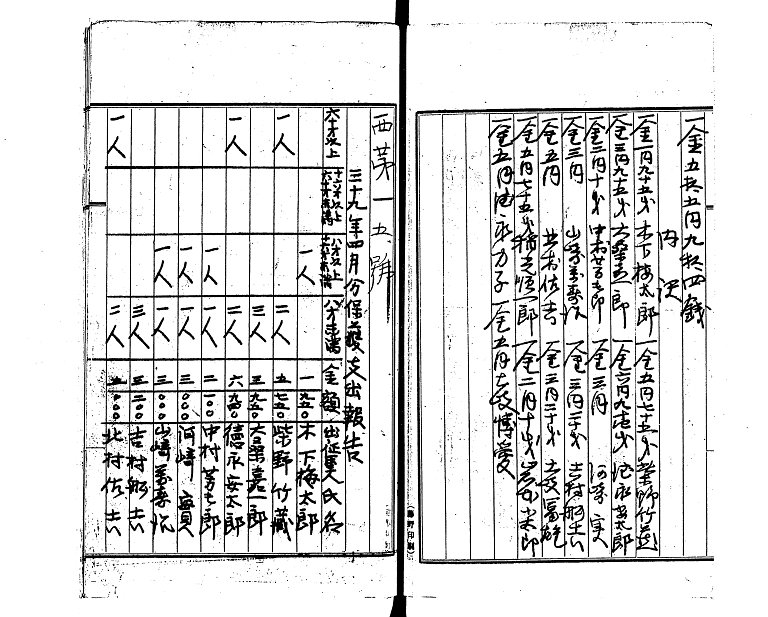 一金五拾五円九拾四銭
内訳
一金一円九十五戋 木下梅太郎 一金五円七十五戋 柴野竹蔵
一金三円九十五戋 大桑嘉一郎 一金六円九十四戋 徳永安太郎
一金二円十戋 中村芳七郎 一金三円 河崎実
一金三円 山崎万寿次 一金三円二十戋 吉村船吉
一金五円 北村佐吉 一金三円二十戋
一金五円七十五戋 一郎 一金二円十戋
一金五円 徳永力子 一金五円 博愛
西第一五号
三十九年四月分保護支出報告
六十才以上 十六才以上六十才未満 八才以上十六才未満 八才未満 金額 出征軍人氏名
一人 一九五〇 木下梅太郎
一人 二人 五七五〇 柴野竹蔵
三人 三九五〇 大桑嘉一郎
一人 二人 六九四〇 徳永安太郎
一人 一人 二一〇〇 中村芳七郎
一人 一人 三〇〇〇 河崎實
一人 一人 三〇〇〇 山崎萬壽次
三人 三二〇〇 吉村船吉
一人 二人 五〇〇〇 北村佐吉